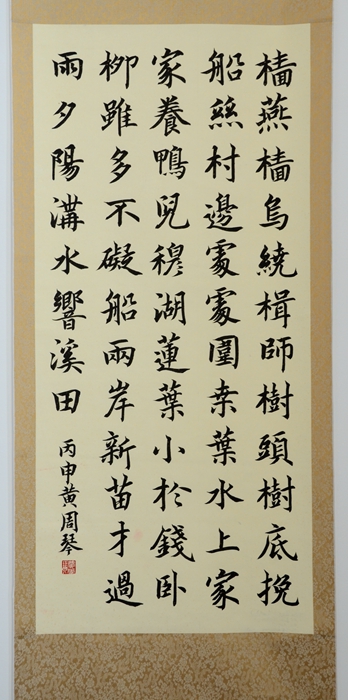 檣燕檣烏繞楫師樹頭樹底挽
船絲村邊處處圍桒葉水上家
家養鴨兒穆湖蓮葉小於錢卧
柳雖多不礙船兩岸新苗才過
雨夕陽溝水響溪田
丙申黄周琴